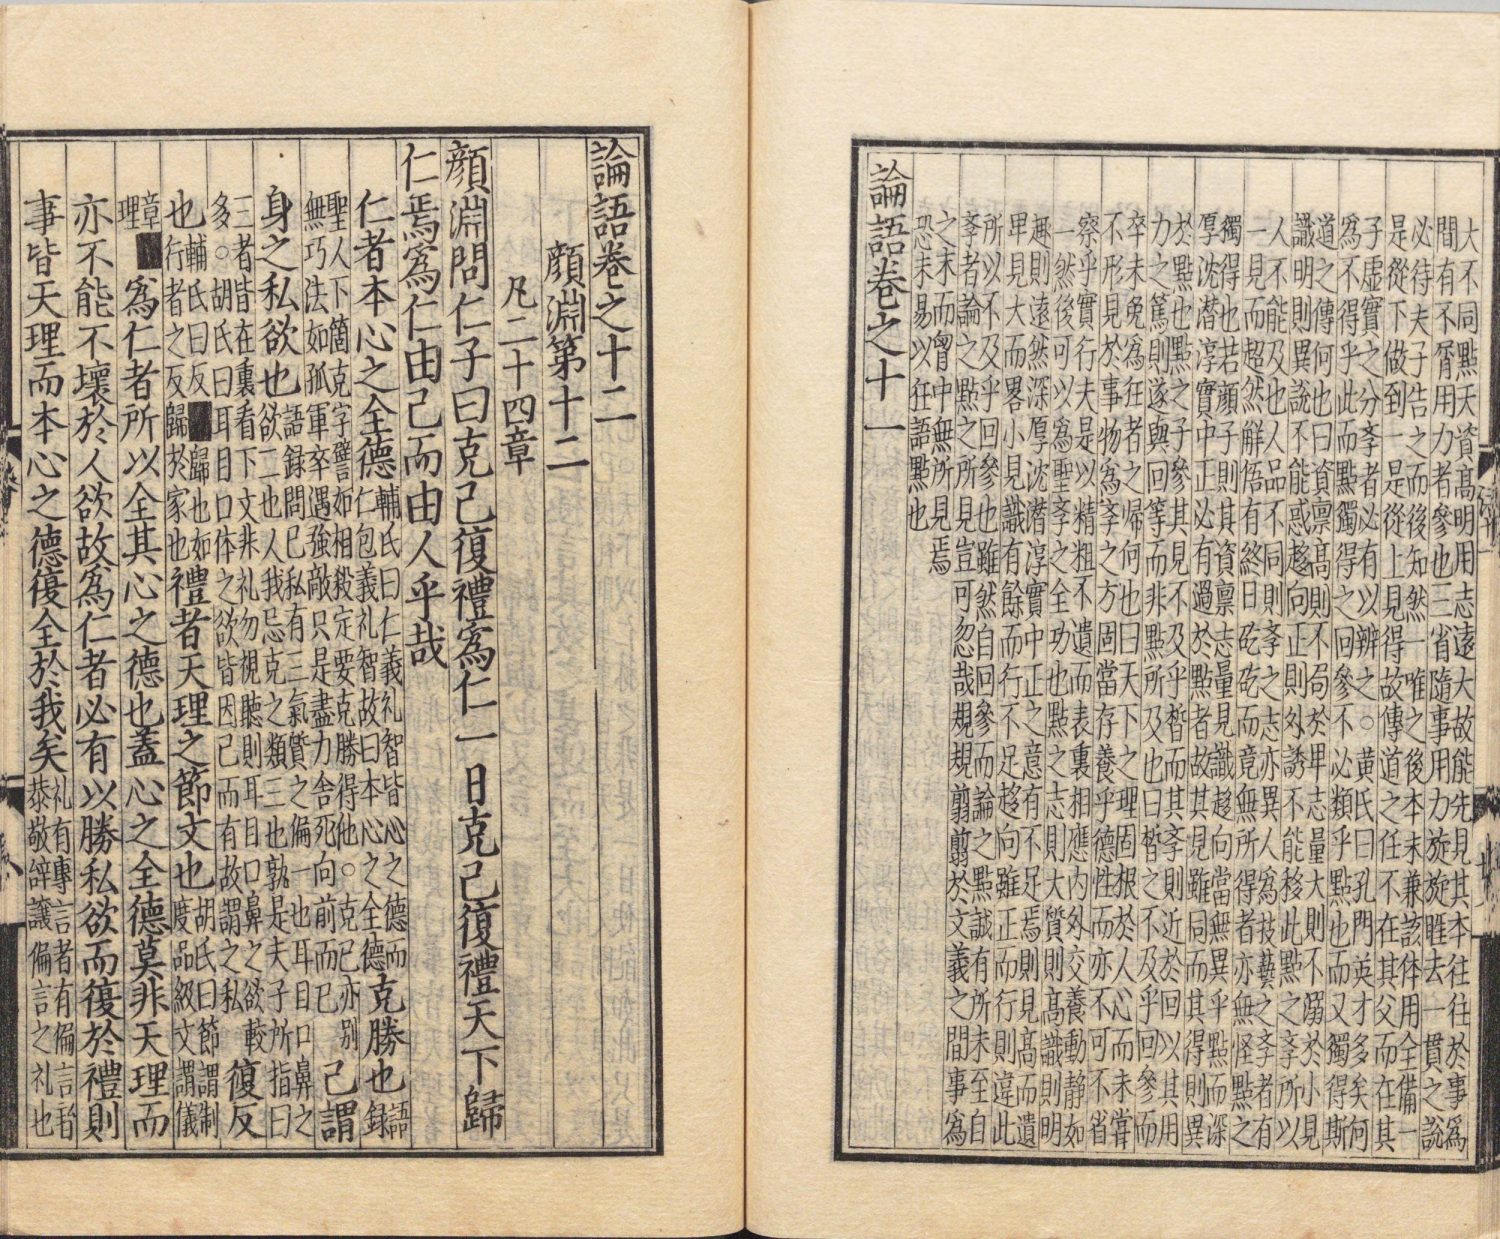 大不同點天資髙明用志遠大故能先見其本往往於事爲
間有不屑用力者參也三省隨事用力旋旋睚去一貫之說
必待夫子告之而後知然一唯之後本末兼該体用全備一
是從下做到一是從上見得故傳道之任不在其父而在其
子虛實之分斈者必有以辨之○黄氏曰孔門英才多矣何
爲不得乎此而點獨得之回參不必類乎點也而又獨得斯
道之傳何也曰資禀髙則不局於卑志量大則不溺於小見
識明則異說不能惑趍向正則外誘不能移此點之斈所以
人不能及也人品不同則斈之志亦異人爲技藝之斈者有
一見而超然解悟有終日矻矻而竟無所得者亦無怪點之
獨得也若顔子則其資禀志量見識趍向當無異乎點而深
厚沈潜淳實中正必有過於點者故其見雖同而其得則異
於點也點之子參其見不及乎皙而其斈則近於回以其用
力之篤則遂與回等而非點所及也曰皙之不及乎回參而
卒未免爲狂者之歸何也曰天下之理固根於人心而未甞
不形見於事物爲斈之方固當存養乎德性而亦不可不省
察乎實行夫是以精粗不遺而表裏相應内外交養動静如
一然後可以爲聖斈之全功也點之志則大質則髙識則明
趣則遠然深厚沈潜淳實中正之意有不足焉則見髙而遺
卑見大而畧小見識有餘而行不足趍向雖正而行則違此
所以不及乎回參也雖然自回參而論之點誠有所未至自
斈者論之點之所見豈可忽哉規規翦翦於文義之間事爲
之末而曾中無所見焉
恐未易以狂語點也
論語卷之十一
論語卷之十二
顔淵第十二
凡二十四章
顔淵問仁子曰克己復禮爲仁一日克己復禮天下歸
仁焉爲仁由己而由人乎哉
仁者本心之全德輔氏曰仁義礼智皆心之德而仁包義礼智故曰本心之全德克勝也語録
聖人下箇克字譬如相殺定要克勝得他○克己亦别無巧法如孤軍卒遇強敵只是盡力舍死向前而已己謂
身之私欲也語録問己私有三氣質之偏一也耳目口鼻之欲二也人我忌克之類三也孰是夫子所指曰
三者皆在裏看下文非礼勿視聽則耳目口鼻之欲較多○胡氏曰耳目口体之欲皆因己而有故謂之私復反
也輔氏曰反歸也如行者之反歸於家也禮者天理之節文也胡氏曰節謂制度品級文謂儀
章理爲仁者所以全其心之德也蓋心之全德莫非天理而
亦不能不壞於人欲故爲仁者必有以勝私欲而復於禮則
事皆天理而本心之德復全於我矣礼有專言者有偏言者恭敬辭讓偏言之礼也